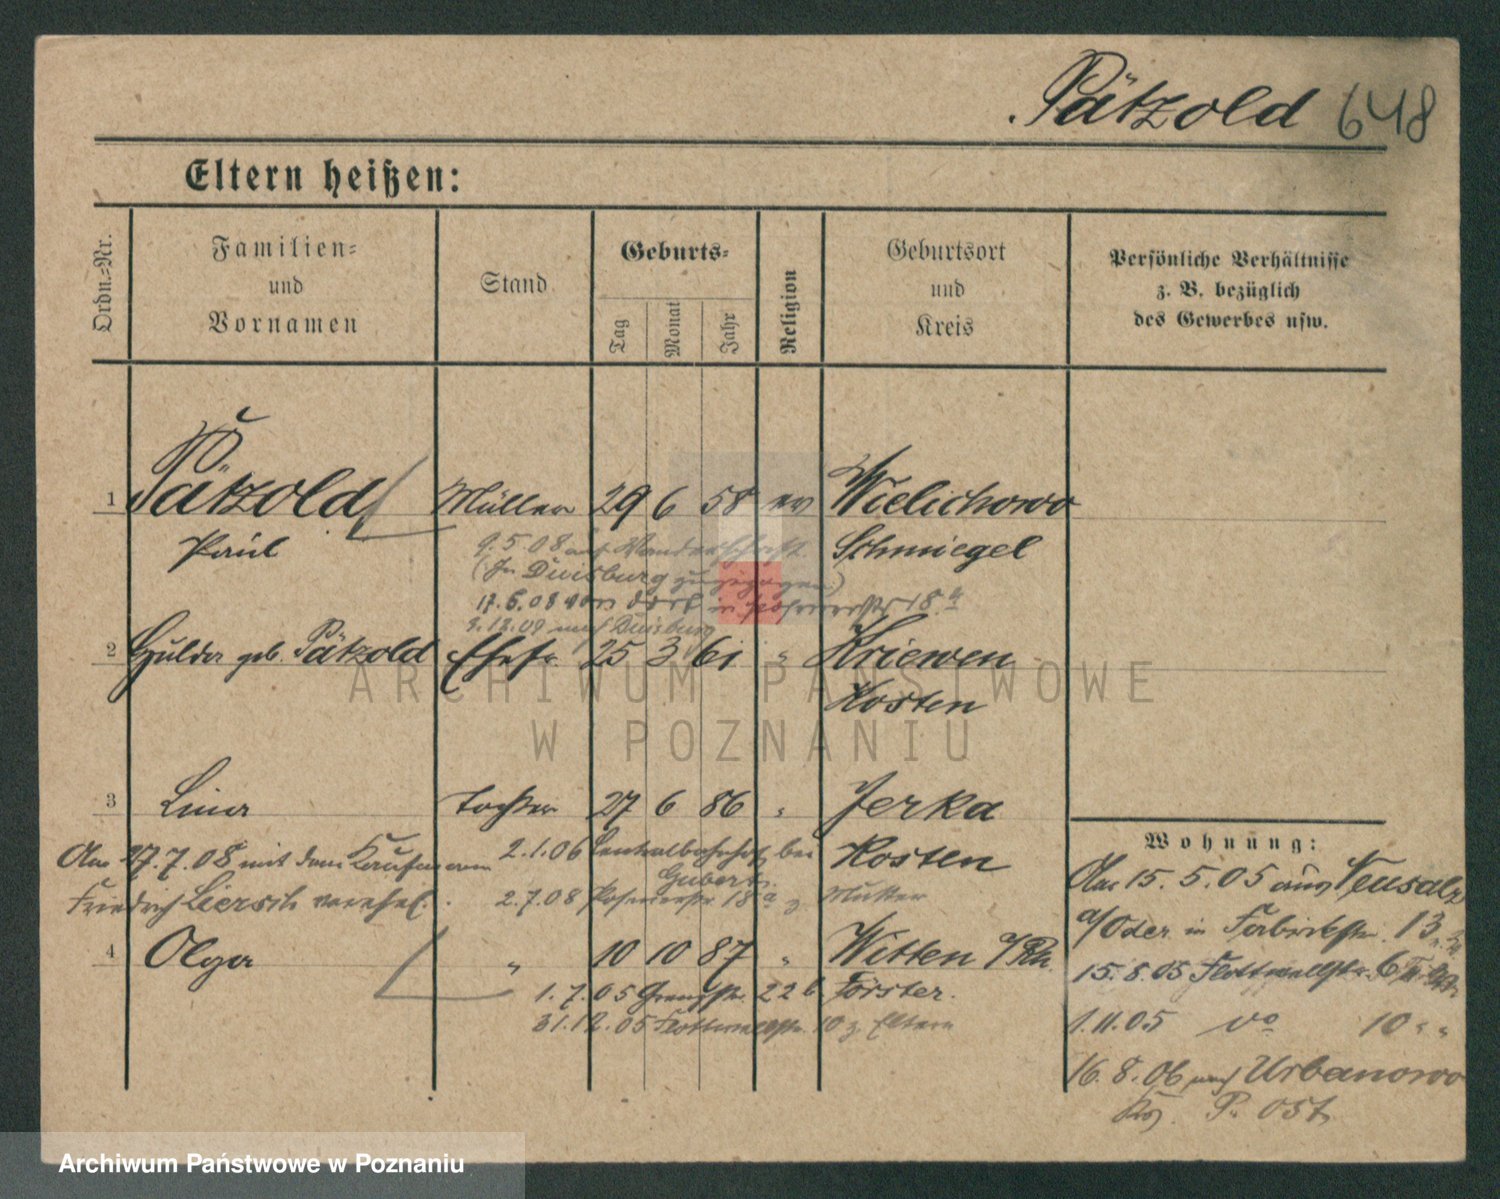 Pätzold 648
Eltern heißen:
Ordn.=Nr.
Familien=
und
Vornamen
Stand
Geburts=
Tag
Monat
Jahr
Religion
Geburtsort
und
Kreis
Persönliche Verhältnisse
z. B. bezüglich
des Gewerbes usw.
1 Pätzold Müller 29 6 58 ev Wielichowo
Paul Schmiegel
9.5.08 auf Wanderschaft
(In Duisburg zugezogen)
17.6.08 von dort in 18.a
3.12.09 nach Duisburg
2 Hulda geb. Pätzold Ehefr. 25 3 61 " Kriewen
Kosten
3 Lina Tochter 27 6 86 " Jerka
Kosten
Am 27.7.08 mit dem Kaufmann
Friedrich verehel.
2.1.06 Centralbahnhof bei
Gubert
2.7.08 Posenerstr 18a z. Mutter
4 Olga " 10 10 87 " Witten a/Rh.
1.7.05 Grenzstr. 22b Förster.
31.12.05 Flottwellstr. 10 z. Eltern
Wohnung:
Am 15.5.05 aus Neusalz
a/Oder in Fabrikstr. 13
15.8.05 Flottwellstr. 6
1.11.05 vo 10 " "
16.8.06 nach Urbanowo
Krs. P. Ost.
ARCHIWUM PAŃSTWOWE
W POZNANIU
Archiwum Państwowe w Poznaniu